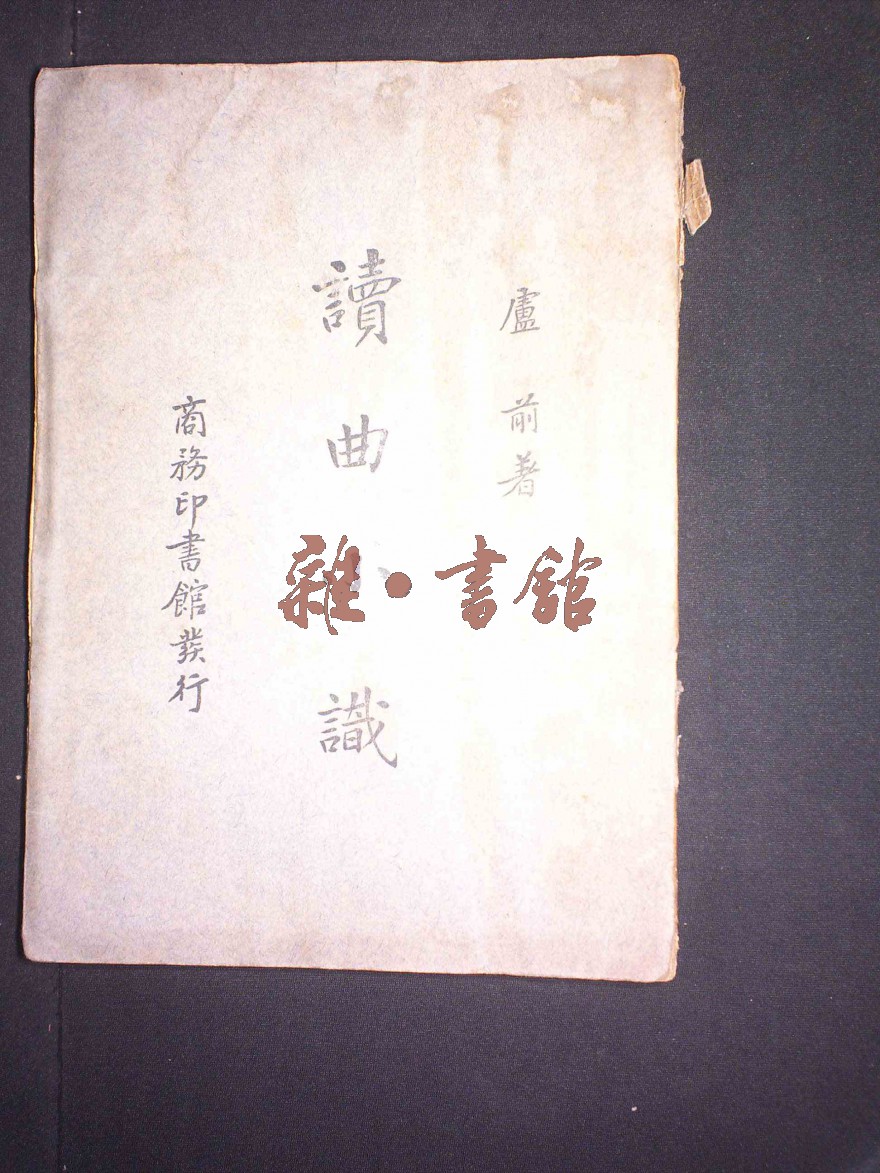 盧前著
讀曲小識
商務印書館發行
雜·書館